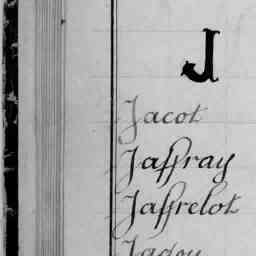 J
Jacot
Jaffray
Jaffrelot